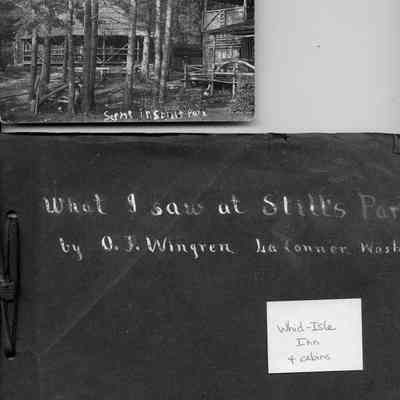 Scene in Still's Park
What I saw at Still's Par
by O. J. Wingren La Conner Wash
Whid-Isle
Inn
4 cabins